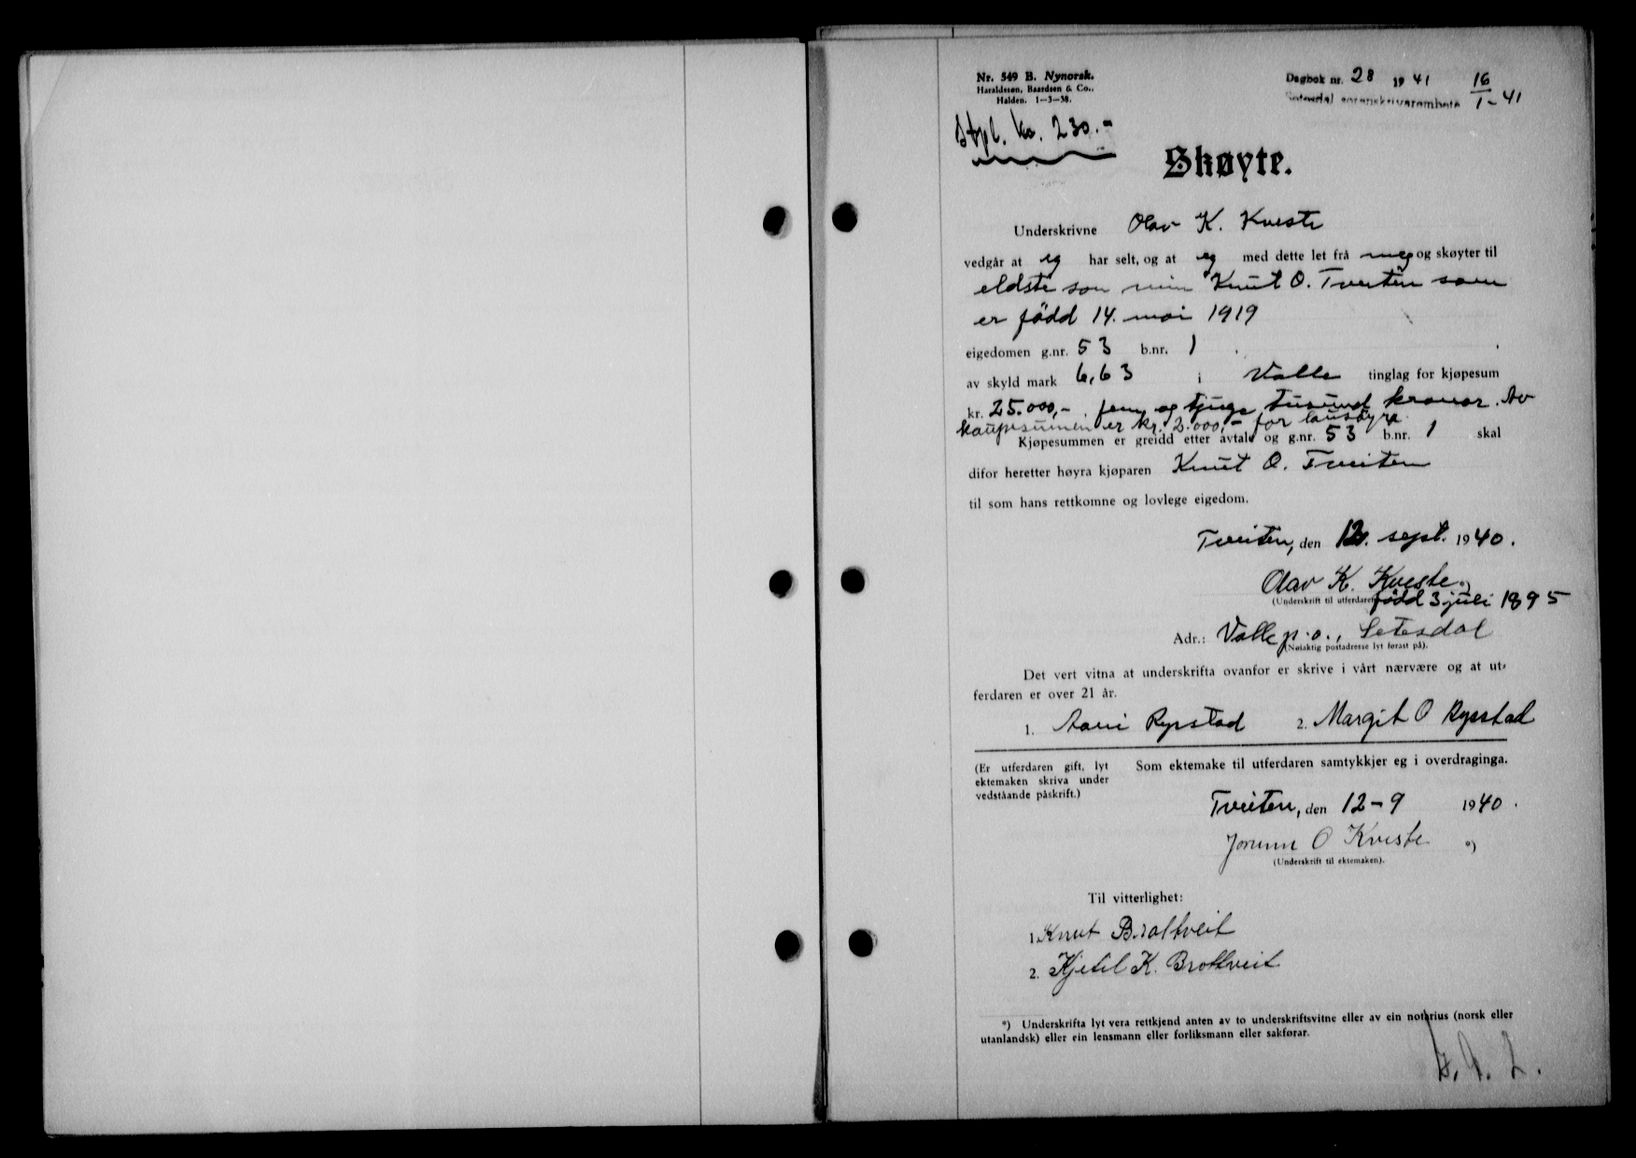 Nr. 549 B. Nynorsk.
Haraldssøn, Baardsen & Co.,
Halden. 1—3—38.
Dagbok nr. 28 1941 16/1-41
Setesdal sorenskrivarembete
Stpl. kr. 230.-
Skøyte.
Underskrivne Olav K. Kveste
vedgår at eg har selt, og at eg med dette let frå meg og skøyter til
eldste son min Knut O. Tveiten som
er född 14. mai 1919
eigedomen g.nr. 53 b.nr. 1
av skyld mark 6,63 i Valle tinglag for kjøpesum
kr. 25.000,- fem og tjuge tusund kronor. Av
kaupesumen er kr. 2.000,- for lausöyra
Kjøpesummen er greidd etter avtale og g.nr. 53 b.nr. 1 skal
difor heretter høyra kjøparen Knut O. Tveiten
til som hans rettkomne og lovlege eigedom.
Tveiten, den 12. sept. 1940.
Olav K. Kveste *)
(Underskrift til utferdaren) född 3 juli 1895
Adr.: Valle p.o., Setesdal
(Nøiaktig postadresse lyt førast på).
Det vert vitna at underskrifta ovanfor er skrive i vårt nærvære og at ut-
ferdaren er over 21 år.
1. Aani Rysstad 2. Margit O Rysstad
(Er utferdaren gift, lyt
ektemaken skriva under
vedståande påskrift.)
Som ektemake til utferdaren samtykkjer eg i overdraginga.
Tveiten, den 12-9 1940.
Jorunn O Kveste *)
(Underskrift til ektemaken).
Til vitterlighet:
1. Knut Brottveit
2. Kjetil K. Brottveit
*) Underskrifta lyt vera rettkjend anten av to underskriftsvitne eller av ein notarius (norsk eller
utanlandsk) eller ein lensmann eller forliksmann eller sakførar.